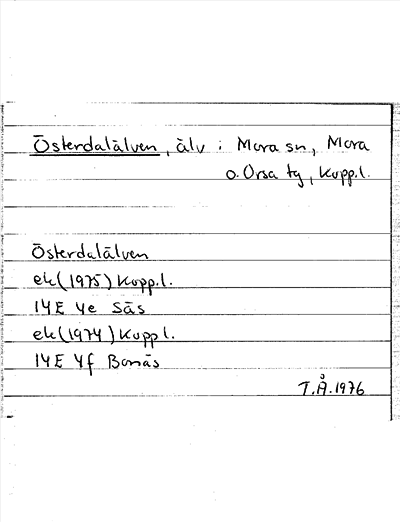 Österdalälven, älv i Mora sn, Mora
o. Orsa tg, Kopp.l.
Österdalälven
ek(1975) Kopp.l.
14E 4e Sås
ek(1974) Kopp l.
14E 4f Bonäs
T.Å.1976